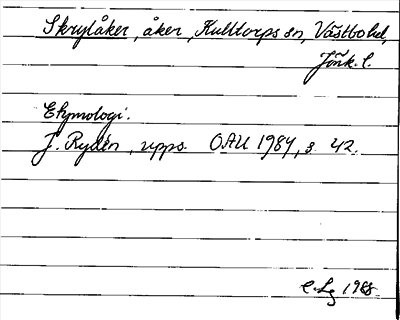 Skrylåker, åker, Kulltorps sn, Västbo hd,
Jönk. l.
Etymologi.
J. Rydén, upps. OAU 1984, s. 42.
C. Lg 1988